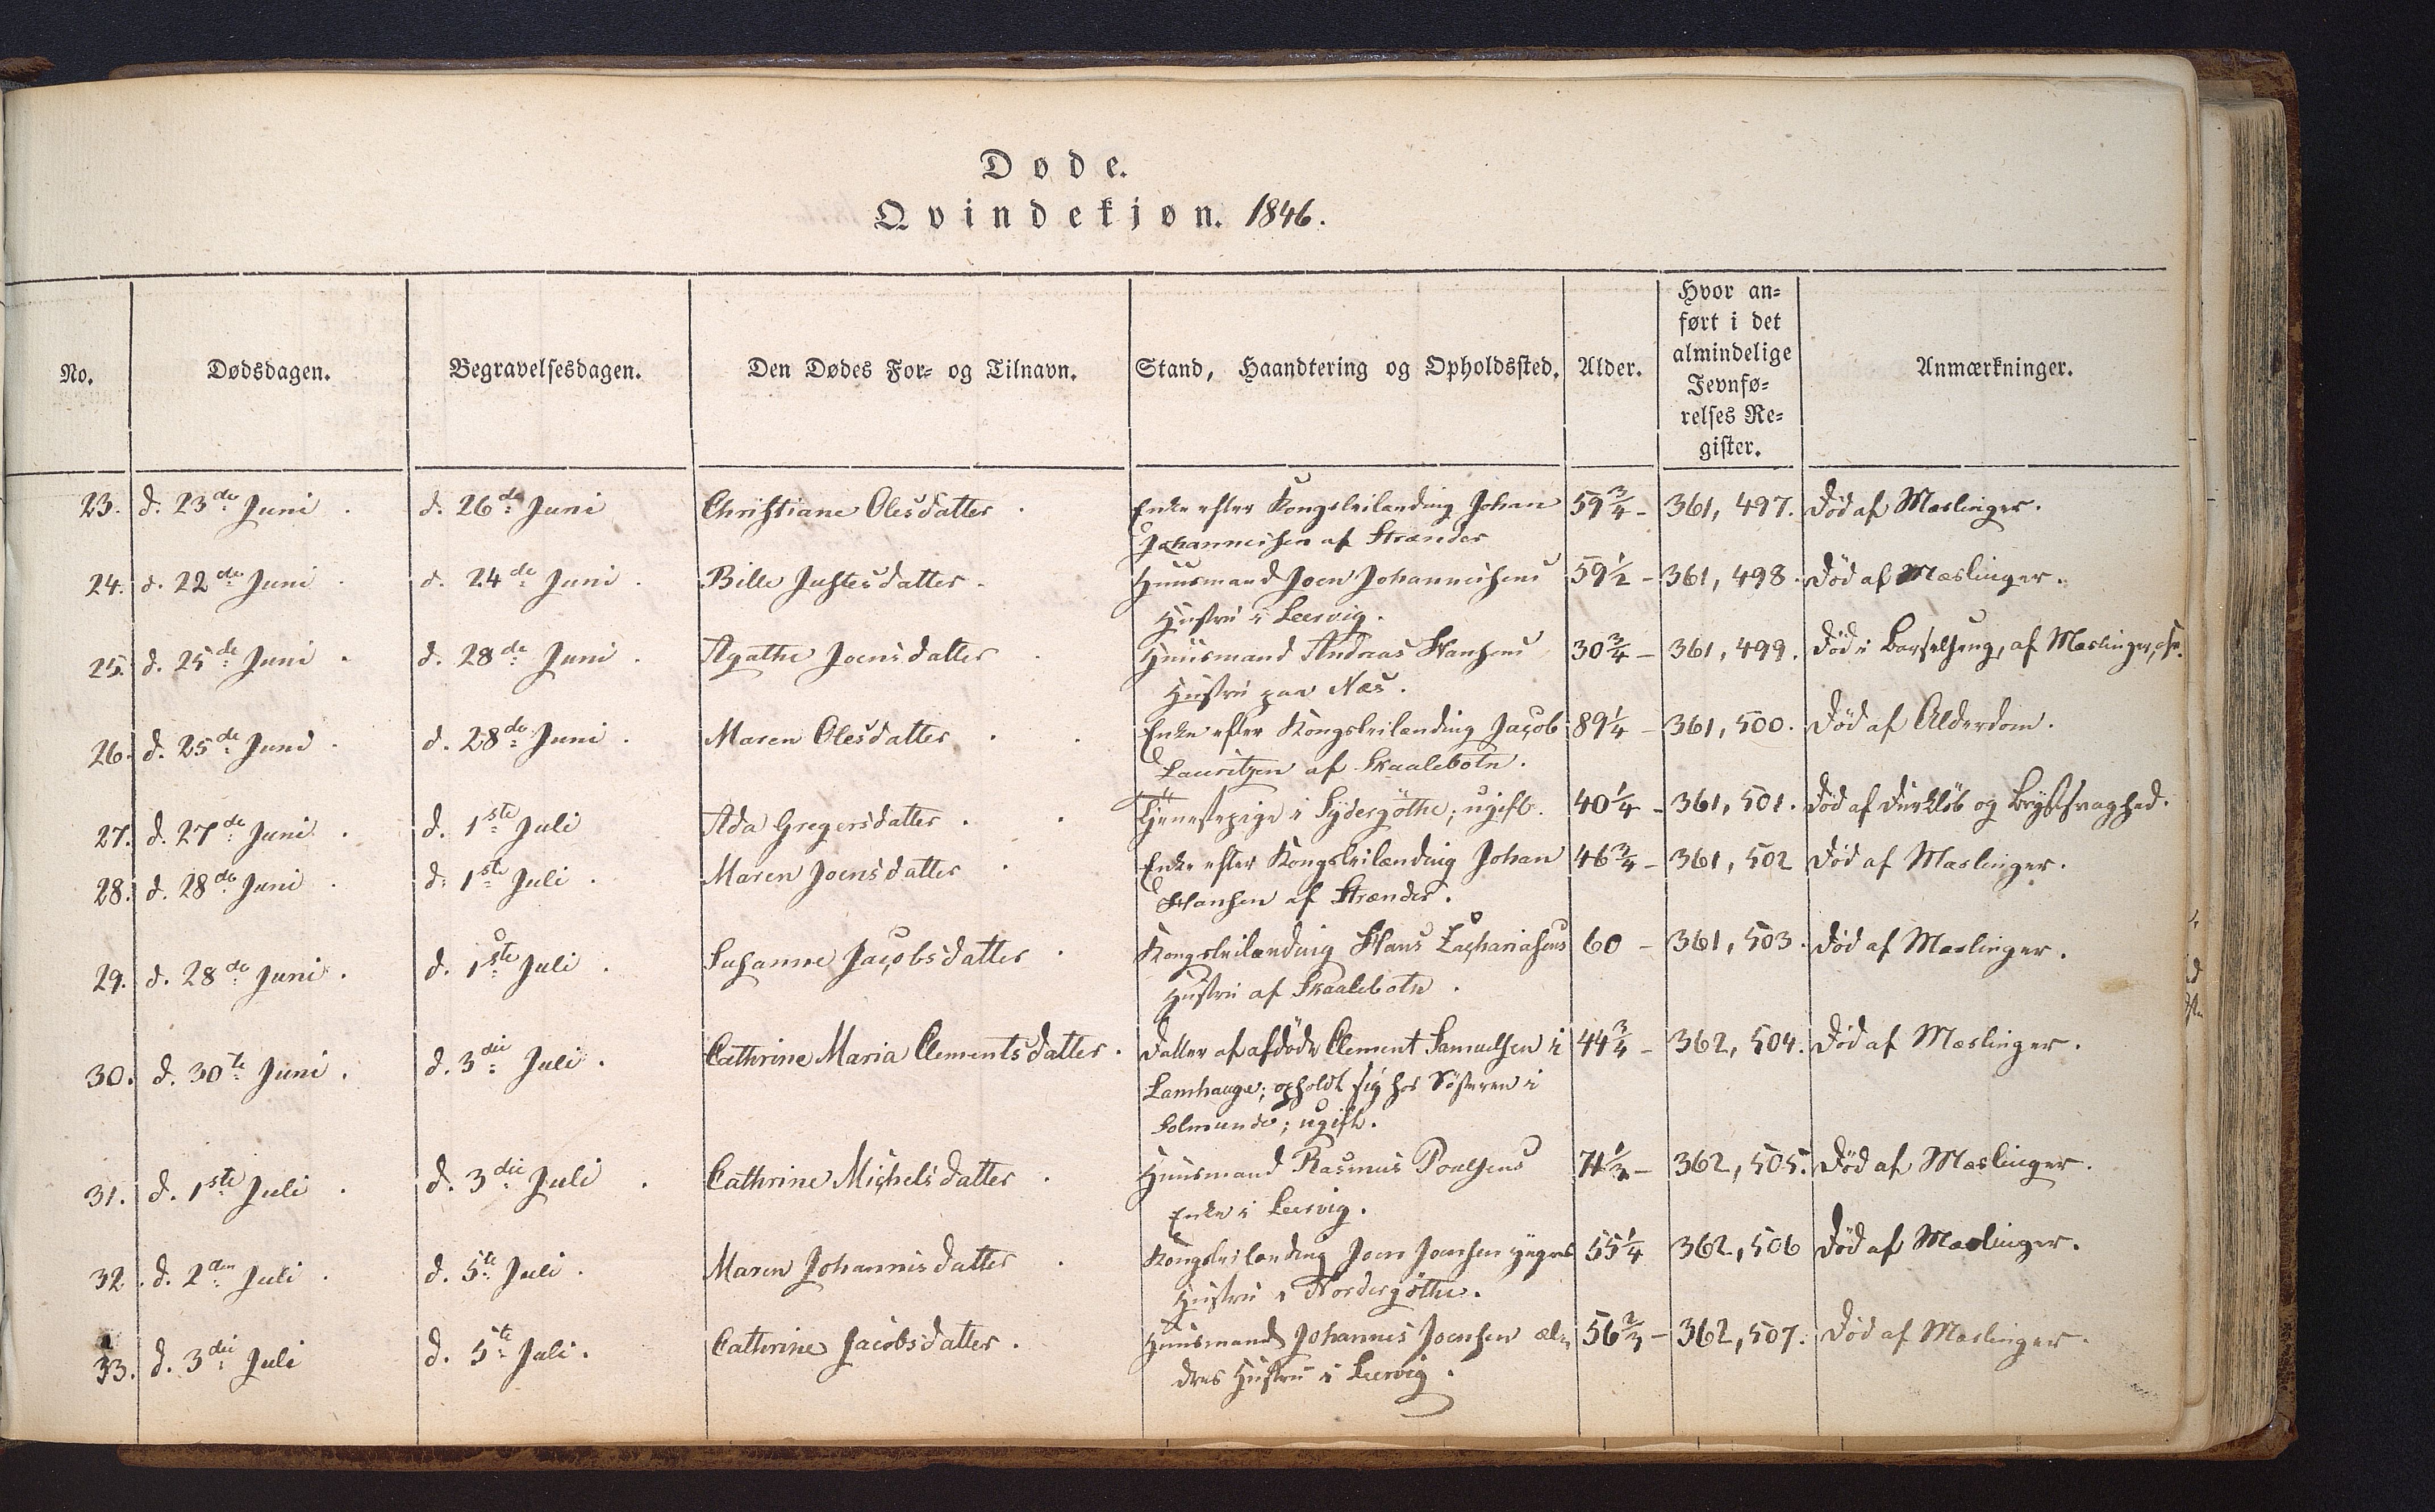 Døde.
Qvindekjøn. 1846.
No.
Dødsdagen.
Begravelsesdagen.
Den Dødes For- og Tilnavn.
Stand, Haandtering og Opholdssted.
Alder.
Hvor an-
ført i det
almindelige
Jevnfø-
relses Re-
gister.
Anmærkninger.
23. d. 23de Juni. d. 26de Juni Christiane Olesdatter. Enke efter Kongsleilænding Johan 59 3/4 - 361, 497. Død af Mæslinger.
Johannesen af Strænder
24. d. 22de Juni. d. 24de Juni. Bille Justesdatter. Huusmand Joen Johannesens 59 1/2 - 361, 498. Død af Mæslinger.
Hustru i Leervig.
25. d. 25de Juni. d. 28de Juni. Agathe Joensdatter. Huusmand Andreas Hansens 30 3/4 - 361, 499. Død i Barselseng, af Mæslinger,
Hustru paa Næs.
26. d. 25de Juni. d. 28de Juni. Maren Olesdatter. Enke efter Kongsleilænding Jacob 89 1/4 - 361, 500. Død af Alderdom.
Lauritzen af Skaalebotn.
27. d. 27de Juni. d. 1ste Juli Ada Gregersdatter. Tjenestepige i Sydergöthe; ugift. 40 1/4 - 361, 501. Død af Durkløb og Brystsvaghed.
28. d. 28de Juni. d. 1ste Juli. Maren Joensdatter. Enke efter Kongsleilænding Johan 46 3/4 - 361, 502 Død af Mæslinger.
Hansen af Strænder.
29. d. 28de Juni. d. 1ste Juli. Susanne Jacobsdatter. Kongsleilænding Hans Zachariasens 60 - 361, 503. Død af Mæslinger.
Hustru af Skaalebotn.
30. d. 30te Juni. d. 3die Juli. Cathrine Maria Clementsdatter. Datter af afdøde Clement Samuelsen i 44 3/4 - 362, 504. Død af Mæslinger.
Lamhauge; opholdt sig hos Søsteren i
Solmunde; ugift.
31. d. 1ste Juli. d. 3die Juli. Cathrine Michelsdatter. Huusmand Rasmus Poulsens 71 1/2 - 362, 505. Død af Mæslinger.
Enke i Leervig.
32. d. 2den Juli. d. 5te Juli. Maren Johannisdatter. Kongsleilænding Joen Joensen yngres 55 1/4 362, 506 Død af Mæslinger.
Hustru i Nordergöthe.
33. d. 3die Juli d. 5te Juli. Cathrine Jacobsdatter. Huusmand Johannes Joensen æl- 56 2/3 - 362, 507. Død af Mæslinger.
dres Hustru i Leervig.